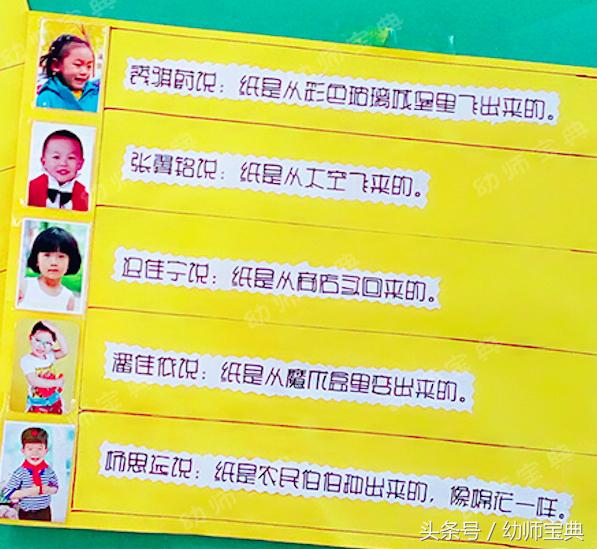 说：纸是从彩色玻璃城堡里飞出来的。
说：纸是从太空飞来的。
但佳宁说：纸是从商店买回来的。
潘佳依说：纸是从魔术盒里变出来的。
杨思远说：纸是农民伯伯种出来的，像棉花一样。
头条号 / 幼师宝典